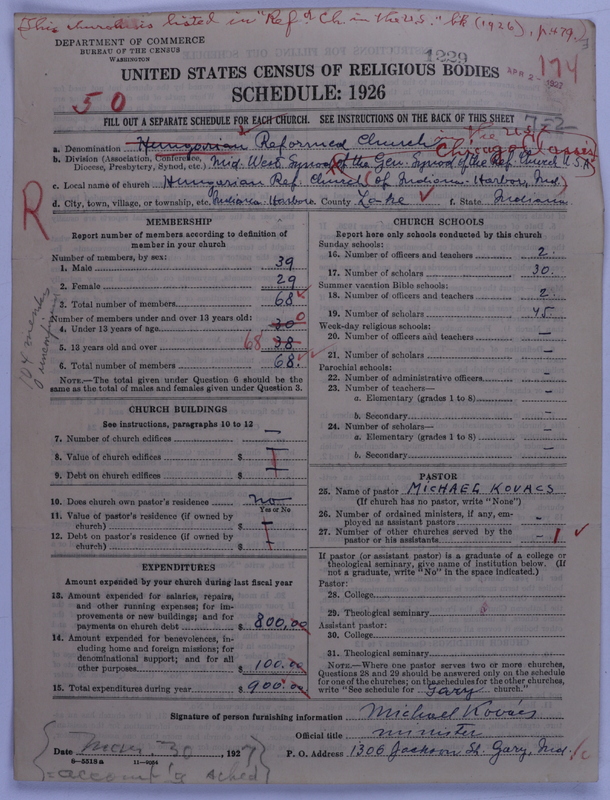 This church is listed in "Ref. Ch. in the U.S." bk (1926), p. 479.
DEPARTMENT OF COMMERCE
BUREAU OF THE CENSUS
WASHINGTON
1229
APR 2 - 1927
174
UNITED STATES CENSUS OF RELIGIOUS BODIES
SCHEDULE: 1926
50
FILL OUT A SEPARATE SCHEDULE FOR EACH CHURCH. SEE INSTRUCTIONS ON THE BACK OF THIS SHEET
7-22
a. Denomination Hungarian Reformed Church
Chicago Classes
b. Division (Association, Conference, Diocese, Presbytery, Synod, etc.) Mid. West Synod of the Gen. Synod of the Ref. Church U.S.A.
c. Local name of church Hungarian Ref. Church (of Indiana-Harbor, Ind.)
d. City, town, village, or township, etc. Indiana-Harbor. County Lake f. State Indiana.
R
MEMBERSHIP
Report number of members according to definition of
member in your church
Number of members, by sex:
1. Male 39
2. Female 29
3. Total number of members 68
Number of members under and over 13 years old:
4. Under 13 years of age 30 0
5. 13 years old and over 68 38
6. Total number of members 68.
NOTE.—The total given under Question 6 should be the
same as the total of males and females given under Question 3.
CHURCH BUILDINGS
See instructions, paragraphs 10 to 12
7. Number of church edifices —
8. Value of church edifices $ —
9. Debt on church edifices $ —
10. Does church own pastor's residence no
Yes or No
11. Value of pastor's residence (if owned by
church) $ —
12. Debt on pastor's residence (if owned by
church) $ —
EXPENDITURES
Amount expended by your church during last fiscal year
13. Amount expended for salaries, repairs,
and other running expenses; for im-
provements or new buildings; and for
payments on church debt $ 800.00
14. Amount expended for benevolences, in-
cluding home and foreign missions; for
denominational support; and for all
other purposes $ 100.00
15. Total expenditures during year $ 900.00
CHURCH SCHOOLS
Report here only schools conducted by this church
Sunday schools:
16. Number of officers and teachers 2.
17. Number of scholars 30.
Summer vacation Bible schools:
18. Number of officers and teachers 2.
19. Number of scholars 45.
Week-day religious schools:
20. Number of officers and teachers —
21. Number of scholars —
Parochial schools:
22. Number of administrative officers —
23. Number of teachers—
a. Elementary (grades 1 to 8) —
b. Secondary —
24. Number of scholars—
a. Elementary (grades 1 to 8) —
b. Secondary —
PASTOR
25. Name of pastor MICHAEL KOVACS
(If church has no pastor, write "None")
26. Number of ordained ministers, if any, em-
ployed as assistant pastors —
27. Number of other churches served by the
pastor or his assistants — 1
If pastor (or assistant pastor) is a graduate of a college or
theological seminary, give name of institution below. (If
not a graduate, write "No" in the space indicated.)
Pastor:
28. College
29. Theological seminary
Assistant pastor:
30. College
31. Theological seminary
NOTE.—Where one pastor serves two or more churches,
Questions 28 and 29 should be answered only on the schedule
for one of the churches; on the schedules for the other churches,
write "See schedule for Gary church."
Signature of person furnishing information Michael Kovács
Official title minister
Date March 30, 1927
P. O. Address 1306 Jackson St. Gary, Ind.
8—5518a 11—9064